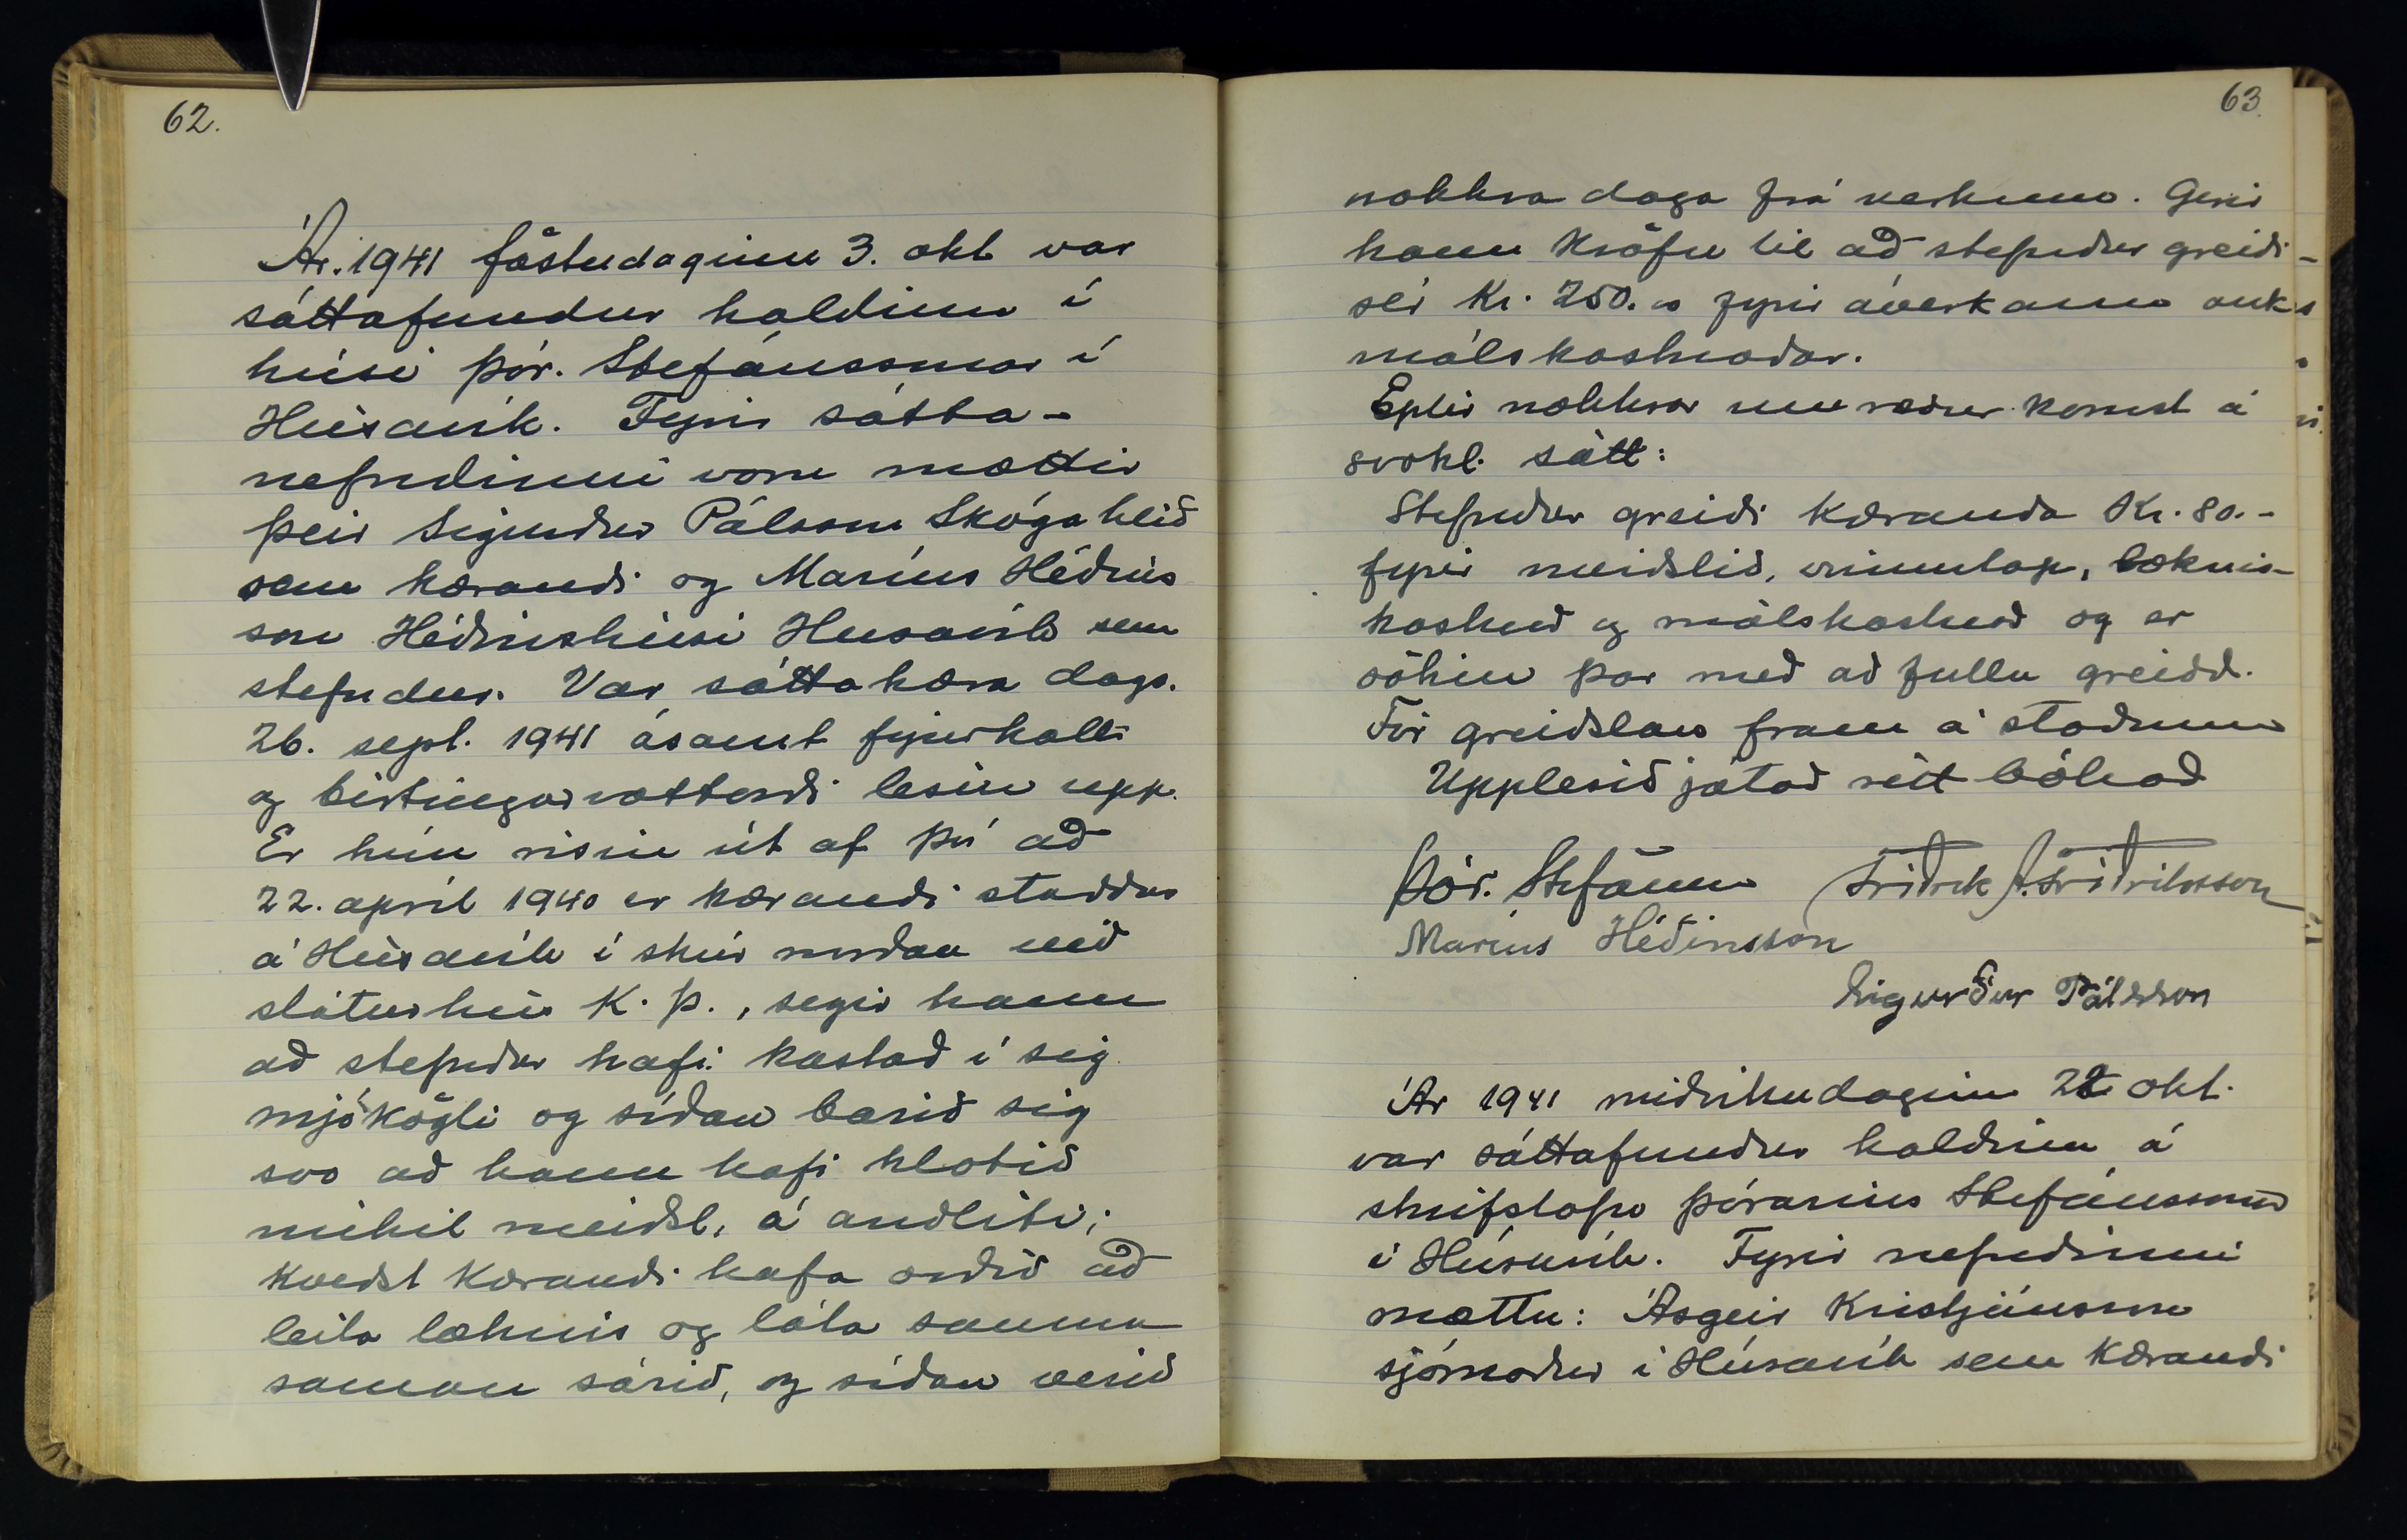 62.
Ár. 1941 föstudaginn 3. okt var
sáttafundur haldinn í
húsi Þór. Stefánssonar í
Húsavík. Fyrir sátta-
nefndinni voru mættir
þeir Sigurður Pálsson Skógahlíð
sem kærandi og Maríus Héðins
son Héðinshúsi Húsavík sem
stefndur. Var sáttakæra dags.
26. sept. 1941 ásamt fyrirkalli
og birtingarvottorði lesin upp.
Er hún risin út af því að
22. apríl 1940 er kærandi staddur
á Húsavík í skúr norðan við
sláturhús K. Þ., segir hann
að stefndur hafi kastað í sig
snjókögli og síðan barið sig
svo að hann hafi hlotið
mikil meiðsl, á andliti;
kveðst kærandi hafa orðið að
leita læknis og láta sauma
saman sárið, og síðan verið
63.
nokkra daga frá verkum. Gerir
hann kröfu til að stefndur greiði-
sér Kr. 250.00 fyrir áverkann auk
málskostnaðar.
Eptir nokkrar umræður komst á
svohl. sátt:
Stefndur greiði kæranda Kr. 80.-
fyrir meiðslið, vinnutap, læknis-
kostnð og málskostnað og er
sökin þar með að fullu greidd.
Fór greiðslan fram á staðnum
Upplesið játað rétt bókað
Þór. Stefánss Friðrik A. Friðriksson
Maríus Héðinsson
Sigurður Pálsson
Ár 1941 miðvikudaginn 22 okt.
var sáttafundur haldinn á
skrifstofu Þórarins Stefánssonar
í Húsavík. Fyrir nefndinni
mættu: Ásgeir Kristjánsson
sjómaður í Húsavík sem kærandi